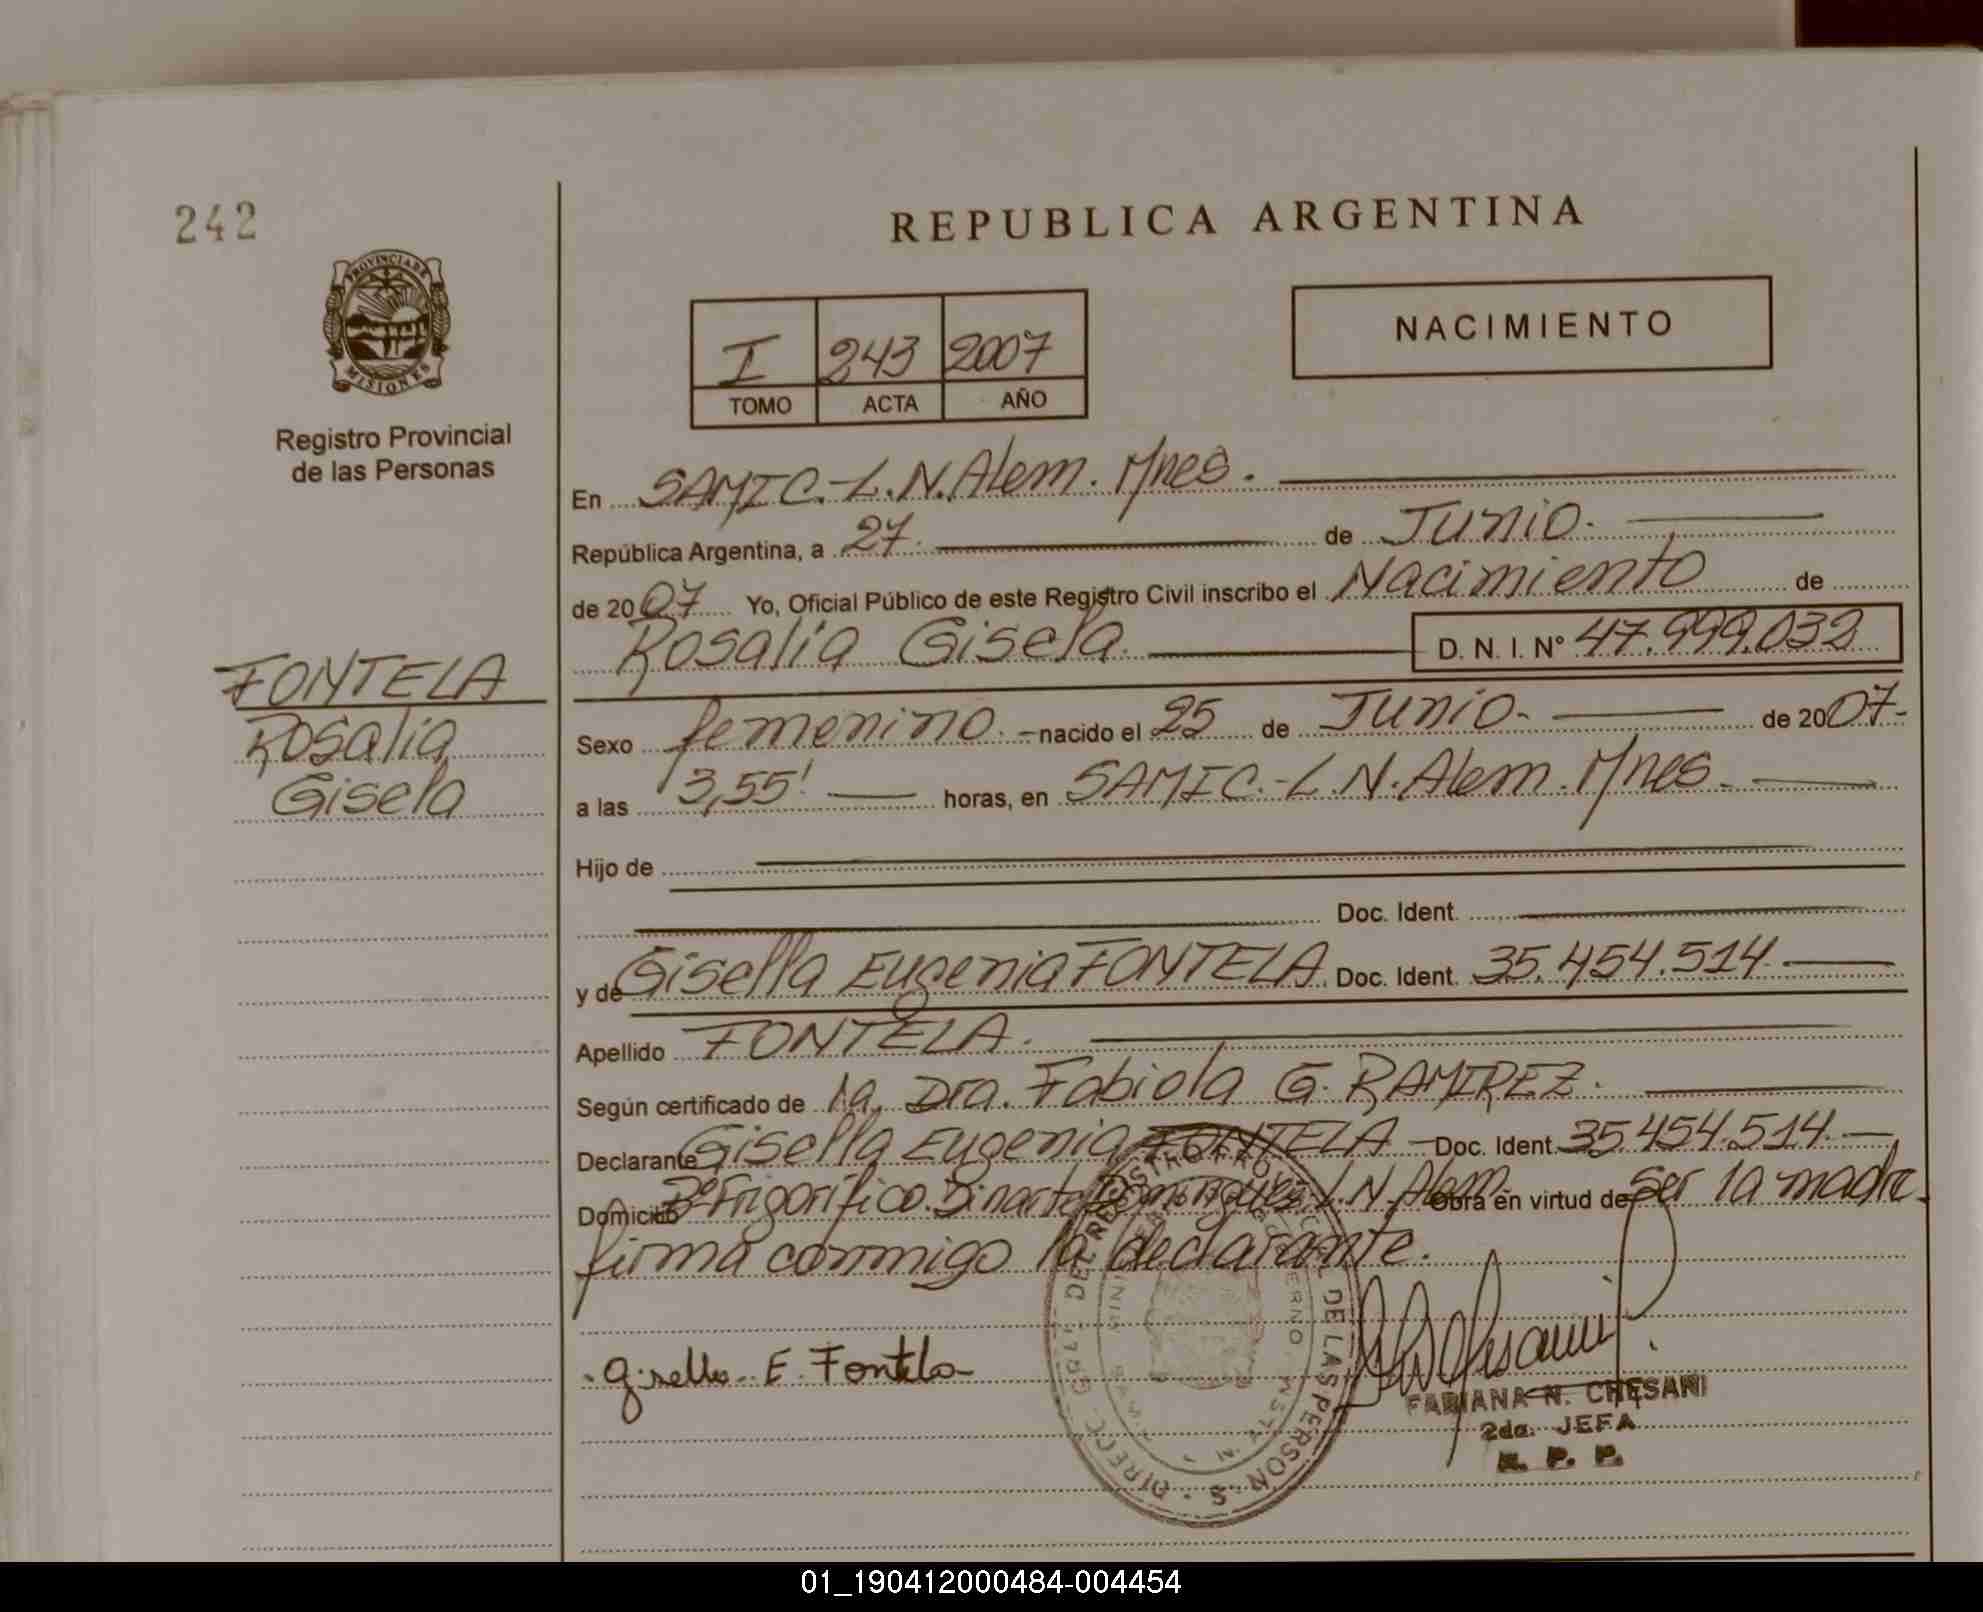 242
REPUBLICA ARGENTINA
PROVINCIA DE
MISIONES
Registro Provincial
de las Personas
I 243 2007
TOMO ACTA AÑO
NACIMIENTO
En SAMIC.-L.N.Alem. Mnes.
República Argentina, a 27. de Junio.
de 2007 Yo, Oficial Público de este Registro Civil inscribo el Nacimiento de
Rosalia Gisela. D. N. I. Nº 47.999.032
FONTELA
Rosalia
Gisela
Sexo femenino.- nacido el 25 de Junio.- de 2007.-
a las 3,55' horas, en SAMIC.-L.N.Alem. Mnes.
Hijo de
Doc. Ident.
y de Gisella Eugenia FONTELA. Doc. Ident. 35.454.514
Apellido FONTELA.
Según certificado de la Dra. Fabiola G. RAMIREZ.
Declarante Gisella Eugenia FONTELA - Doc. Ident. 35.454.514.-
Domicilio Bº Frigorífico. L.N.Alem Obra en virtud de Ser la madre.
firma conmigo la declarante.
Gisella E. Fontela
FABIANA N. CHESANI
2da. JEFA
R. P. P.
01_190412000484-004454